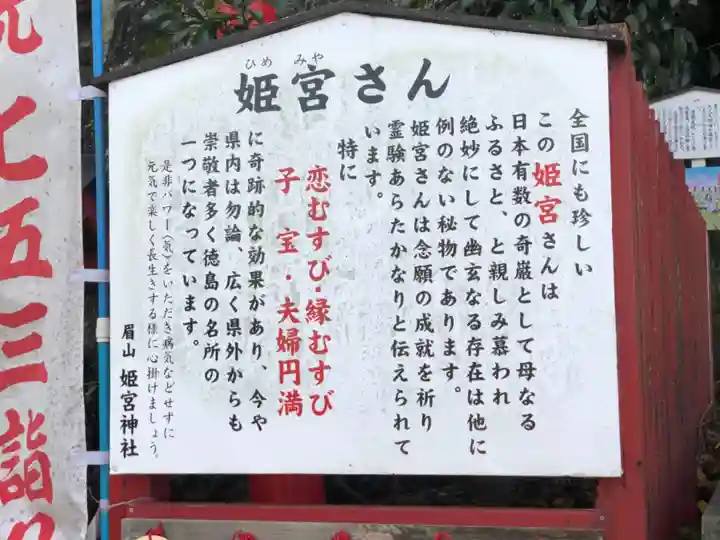 ひめ みや
姫宮さん
全国にも珍しい
この姫宮さんは
日本有数の奇巌として母なる
ふるさと、と親しみ慕われ
絶妙にして幽玄なる存在は他に
例のない秘物であります。
姫宮さんは念願の成就を祈り
霊験あらたかなりと伝えられて
います。
特に
恋むすび・縁むすび
子宝・夫婦円満
に奇跡的な効果があり、今や
県内は勿論、広く県外からも
崇敬者多く徳島の名所の
一つになっています。
是非パワー(気)をいただき病気などせずに
元気で楽しく長生きする様に心掛けましょう。
眉山 姫宮神社
七五三詣